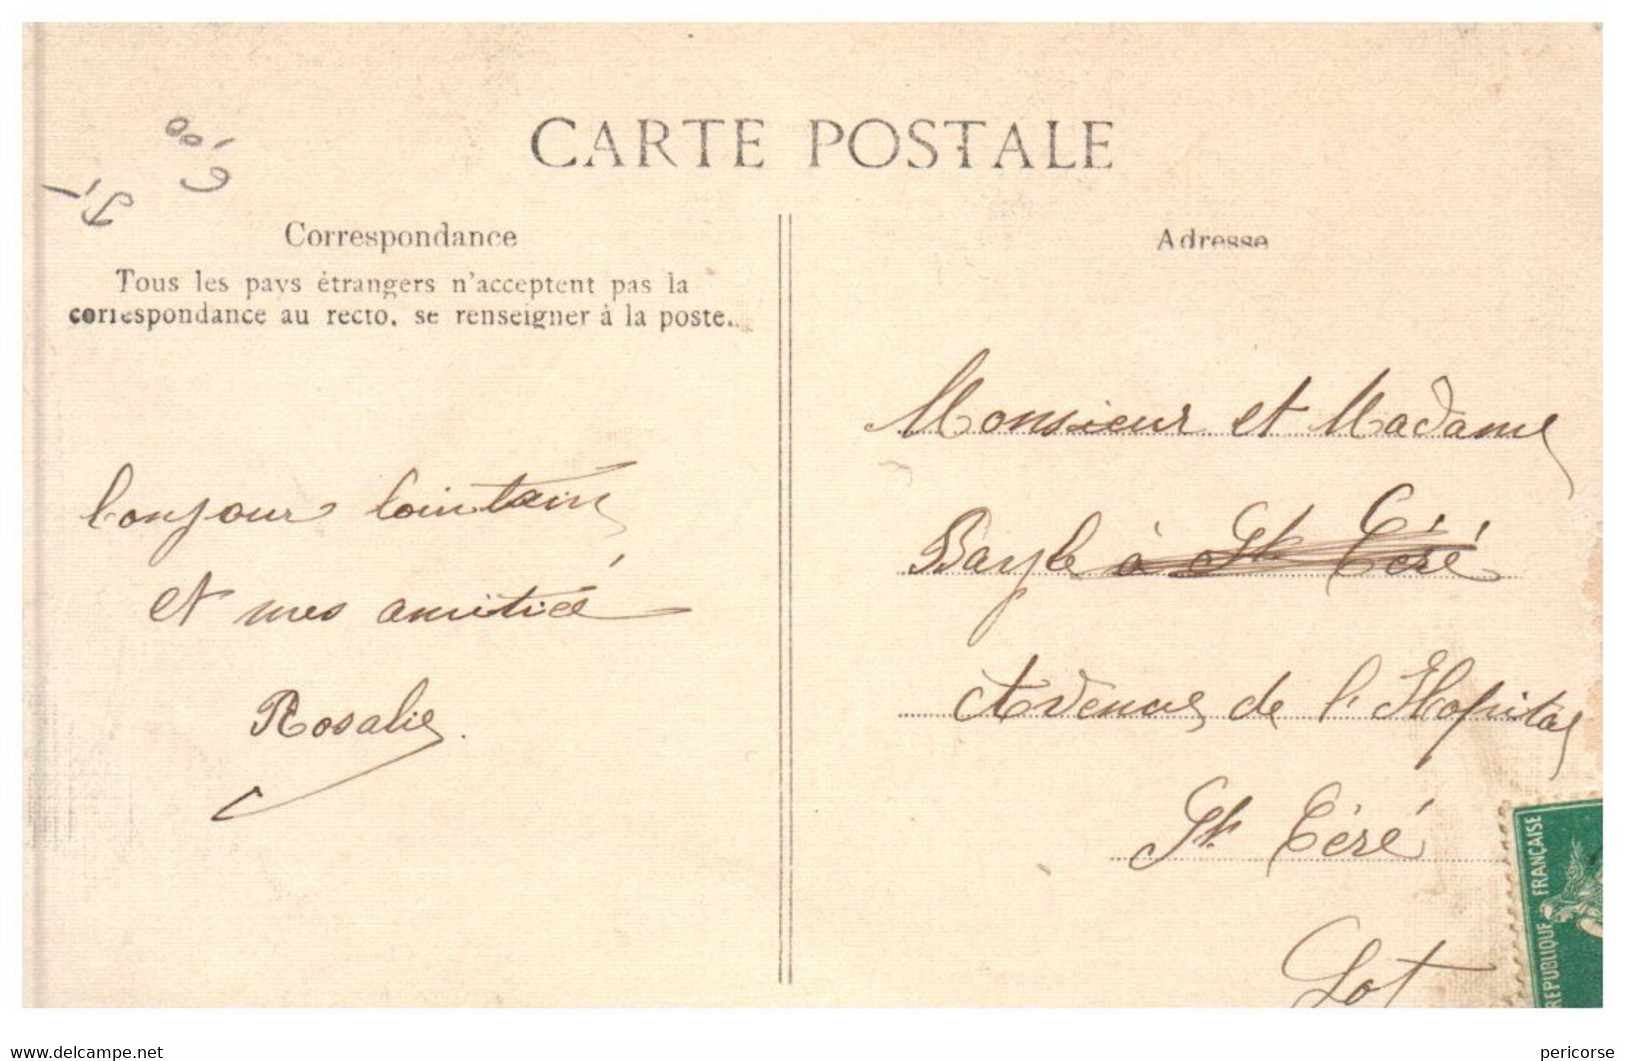 CARTE POSTALE
Correspondance
Tous les pays étrangers n'acceptent pas la
correspondance au recto, se renseigner à la poste.
bonjour lointain
et mes amitié
Rosalie.
Adresse
Monsieur et Madame
Bayle à St Céré
Avenue de l'Hopital
St. Céré
Lot
REPUBLIQUE FRANÇAISE
www.delcampe.net
pericorse